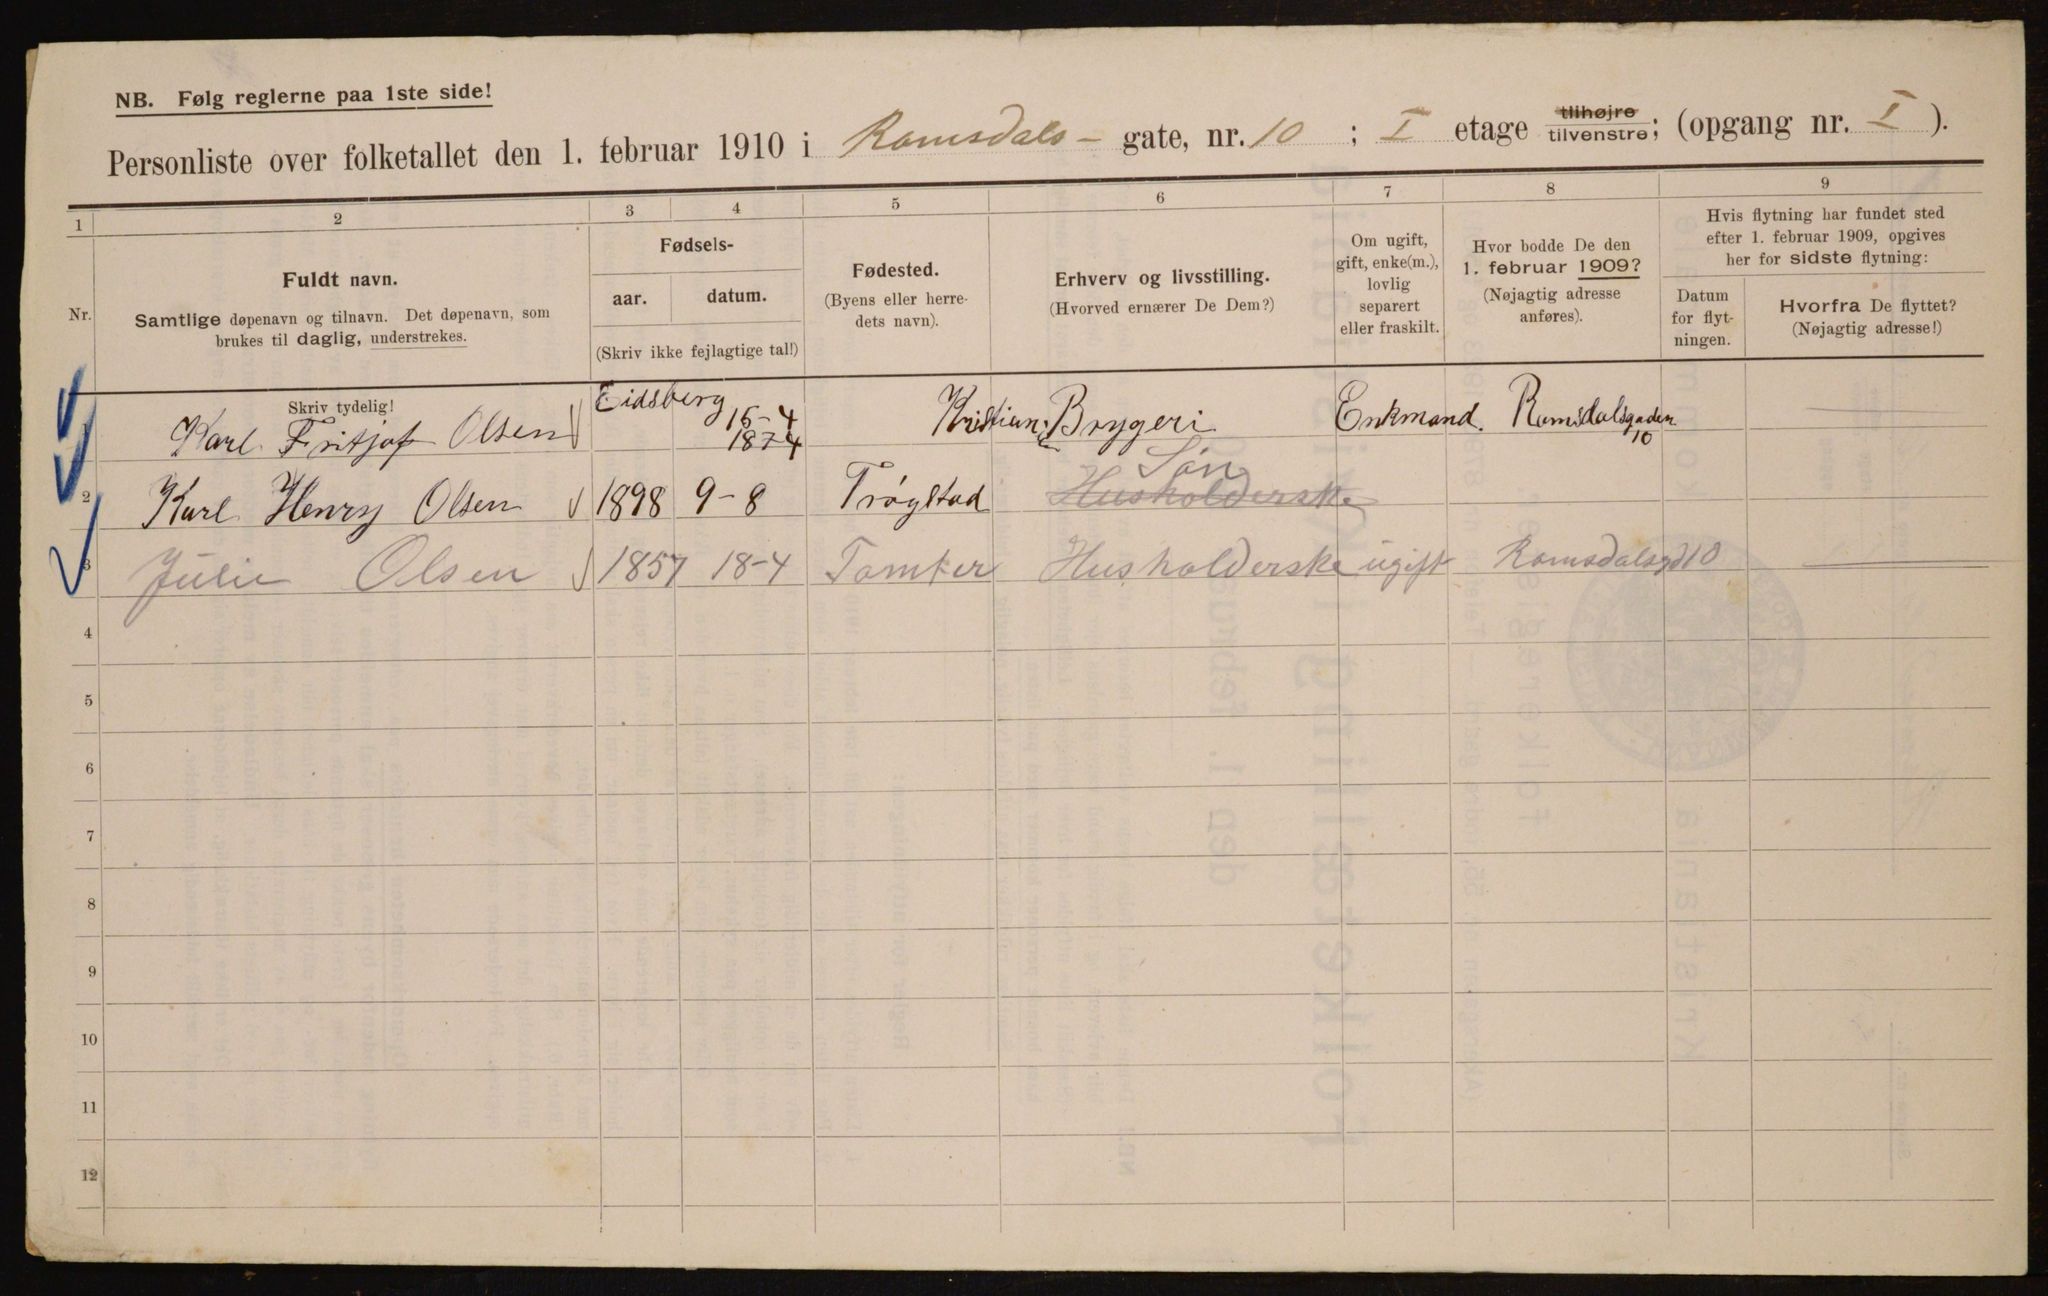 NB. Følg reglerne paa 1ste side!
Personliste over folketallet den 1. februar 1910 i Romsdals- gate, nr. 10 ; I etage tilhøjre tilvenstre; (opgang nr. I ).
1 2 3 4 5 6 7 8 9
Nr.
Fuldt navn.
Samtlige døpenavn og tilnavn. Det døpenavn, som
brukes til daglig, understrekes.
Fødsels-
aar. datum.
(Skriv ikke fejlagtige tal!)
Fødested.
(Byens eller herre-
dets navn).
Erhverv og livsstilling.
(Hvorved ernærer De Dem?)
Om ugift,
gift, enke(m.),
lovlig
separert
eller fraskilt.
Hvor bodde De den
1. februar 1909?
(Nøjagtig adresse
anføres).
Hvis flytning har fundet sted
efter 1. februar 1909, opgives
her for sidste flytning:
Datum
for flyt-
ningen.
Hvorfra De flyttet?
(Nøjagtig adresse!)
Skriv tydelig!
Karl Fritjof Olsen Eidsberg 15-4 1874 Kristian: Brygeri Enkmand. Romsdalsgaden 10
2 Karl Henry Olsen 1898 9-8 Trøgstad Husholderske Søn
3 Julie Olsen 1857 18-4 Tomter Husholderske ugift Romsdalsgd 10
4
5
6
7
8
9
10
11
12